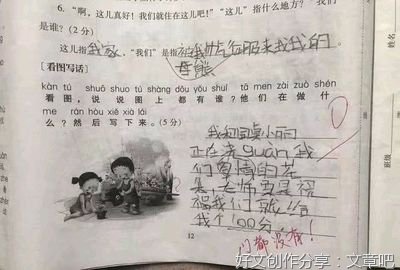 6. “啊,这儿真好!我们就住在这儿吧!”“这儿”指什么地方?“我们”
是谁?(2分)
这儿指我家,“我们”是指被我征服来找我的
母熊
【看图写话】
kàn tú shuō shuo tú shàng dōu yǒu shuí tā men zài zuò shén
看图,说说图上都有谁?他们在做什
me rán hòu xiě xià lái
么?然后写下来。(5分)
0
我和同桌小丽
正在浇guàn我
们国的花
朵,老师要是祝
福我们就给
我个100分!
门都没有!
12
班级
好文创作分享:文章吧